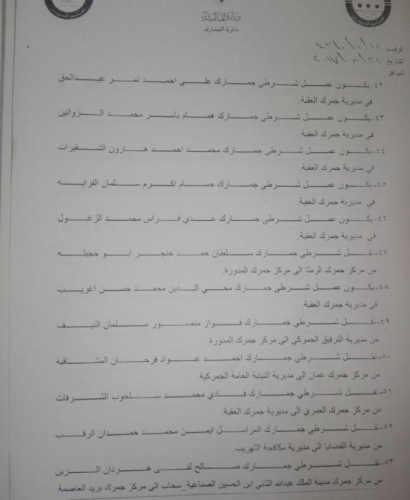 وزارة المالية
دائرة الجمارك
الرقم
التاريخ
الموافق
٤٢- يكون عمل شرطي جمارك علي احمد نمر عبدالحق
في مديرية جمرك العقبة.
٤٣- يكون عمل شرطي جمارك همام ياسر محمد الزواتين
في مديرية جمرك العقبة.
٤٤- يكون عمل شرطي جمارك محمد احمد هارون الشقيرات
في مديرية جمرك العقبة.
٤٥- يكون عمل شرطي جمارك حسام اكرم سلمان القرايه
في مديرية جمرك العقبة.
٤٦- يكون عمل شرطي جمارك عدي فراس محمد الزغول
في مديرية جمرك العقبة.
٤٧- نقل شرطي جمارك سلطان حمد خنجر ابو حجيله
من مركز جمرك الرمثا الى مركز جمرك المدورة.
٤٨- يكون عمل شرطي جمارك محي الدين محمد حسن اغريب
في مديرية جمرك العقبة.
٤٩- نقل شرطي جمارك فواز منصور سلمان النيف
من مديرية الترفيق الجمركي الى مركز جمرك المدورة.
٥٠- نقل شرطي جمارك احمد عواد فرحان المشاقبه
من مركز جمرك عمان الى مديرية النيابة العامة الجمركية.
٥١- نقل شرطي جمارك فادي محمد سلحوب الشرفات
من مركز جمرك العمري الى مديرية جمرك العقبة.
٥٢- نقل شرطي جمارك المراسل ايمن محمد حمدان الرقب
من مديرية القضايا الى مديرية مكافحة التهريب.
٥٣- نقل شرطي جمارك صالح لفي هردان الزبن
من مركز جمرك مدينة الملك عبدالله الثاني ابن الحسين الصناعية _سحاب الى مركز جمرك بريد العاصمة